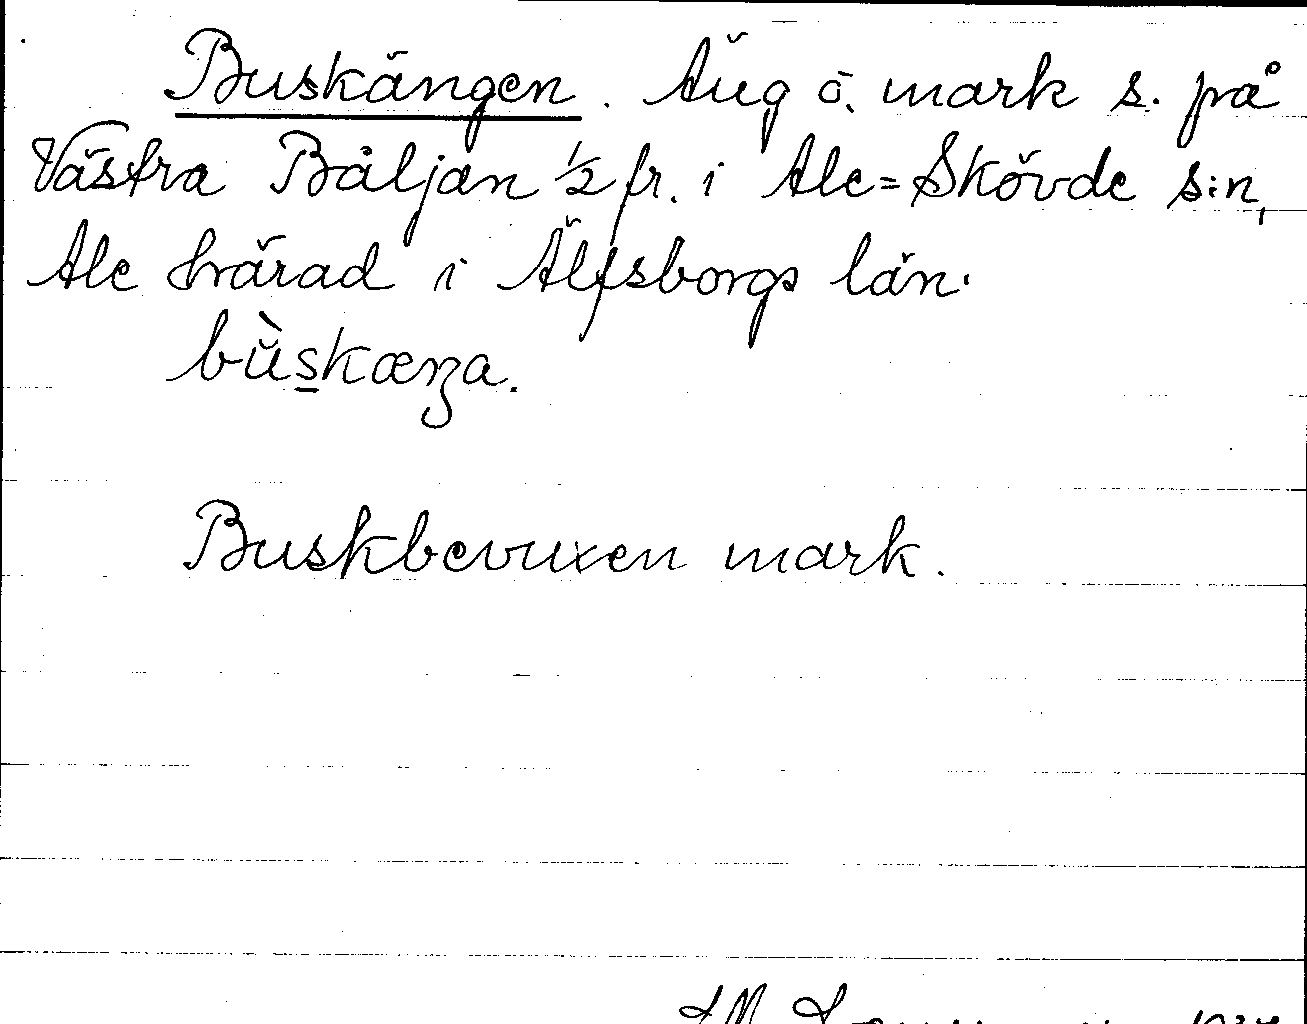 Buskängen. Äng o. mark s. på
Västra Båljan 1/2 fr. i Ale=Skövde s:n,
Ale härad i Älfsborgs län.
bùskæŋa.
Buskbevuxen mark.